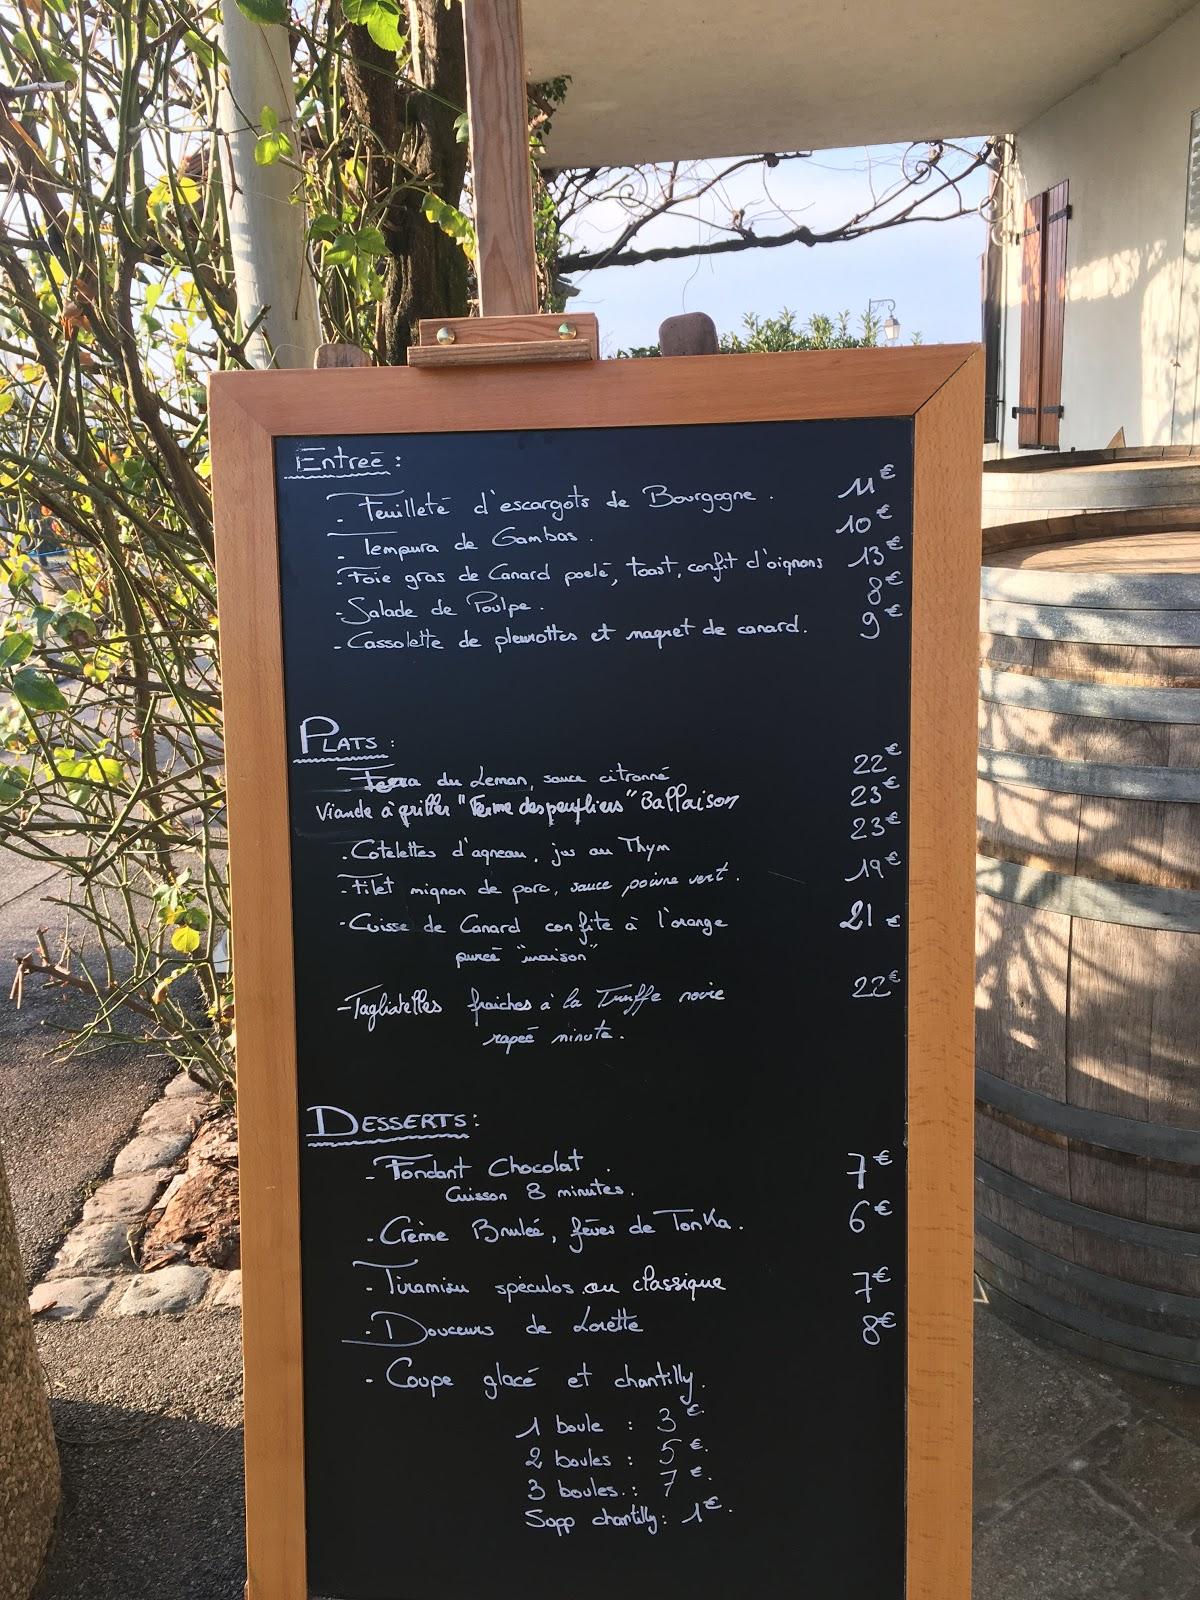 Entreé :
- Feuilleté d'escargots de Bourgogne . 11€
- Tempura de Gambas . 10€
- Foie gras de Canard poelé, toast, confit d'oignons 13€
- Salade de Poulpe . 8€
- Cassolette de pleurottes et magret de canard. 9€
PLATS :
Fera du Leman, sauce citronné 22€
Viande à griller "Ferme des peupliers" Ballaison 23€
. Cotelettes d'agneau, jus au Thym 23€
- Filet mignon de porc, sauce poivre vert . 19€
- Cuisse de Canard confite à l'orange 21 €
pureé "maison"
- Tagliatelles fraiches à la Truffe noire 22€
rapeé minute .
DESSERTS :
- Fondant Chocolat . 7€
Cuisson 8 minutes .
. Crème Bruleé, fèves de Tonka . 6€
. Tiramisu spéculos ou classique 7€
. Douceurs de Lorette 8€
. Coupe glacé et chantilly .
1 boule : 3€.
2 boules : 5€.
3 boules. : 7€.
Supp chantilly : 1€.